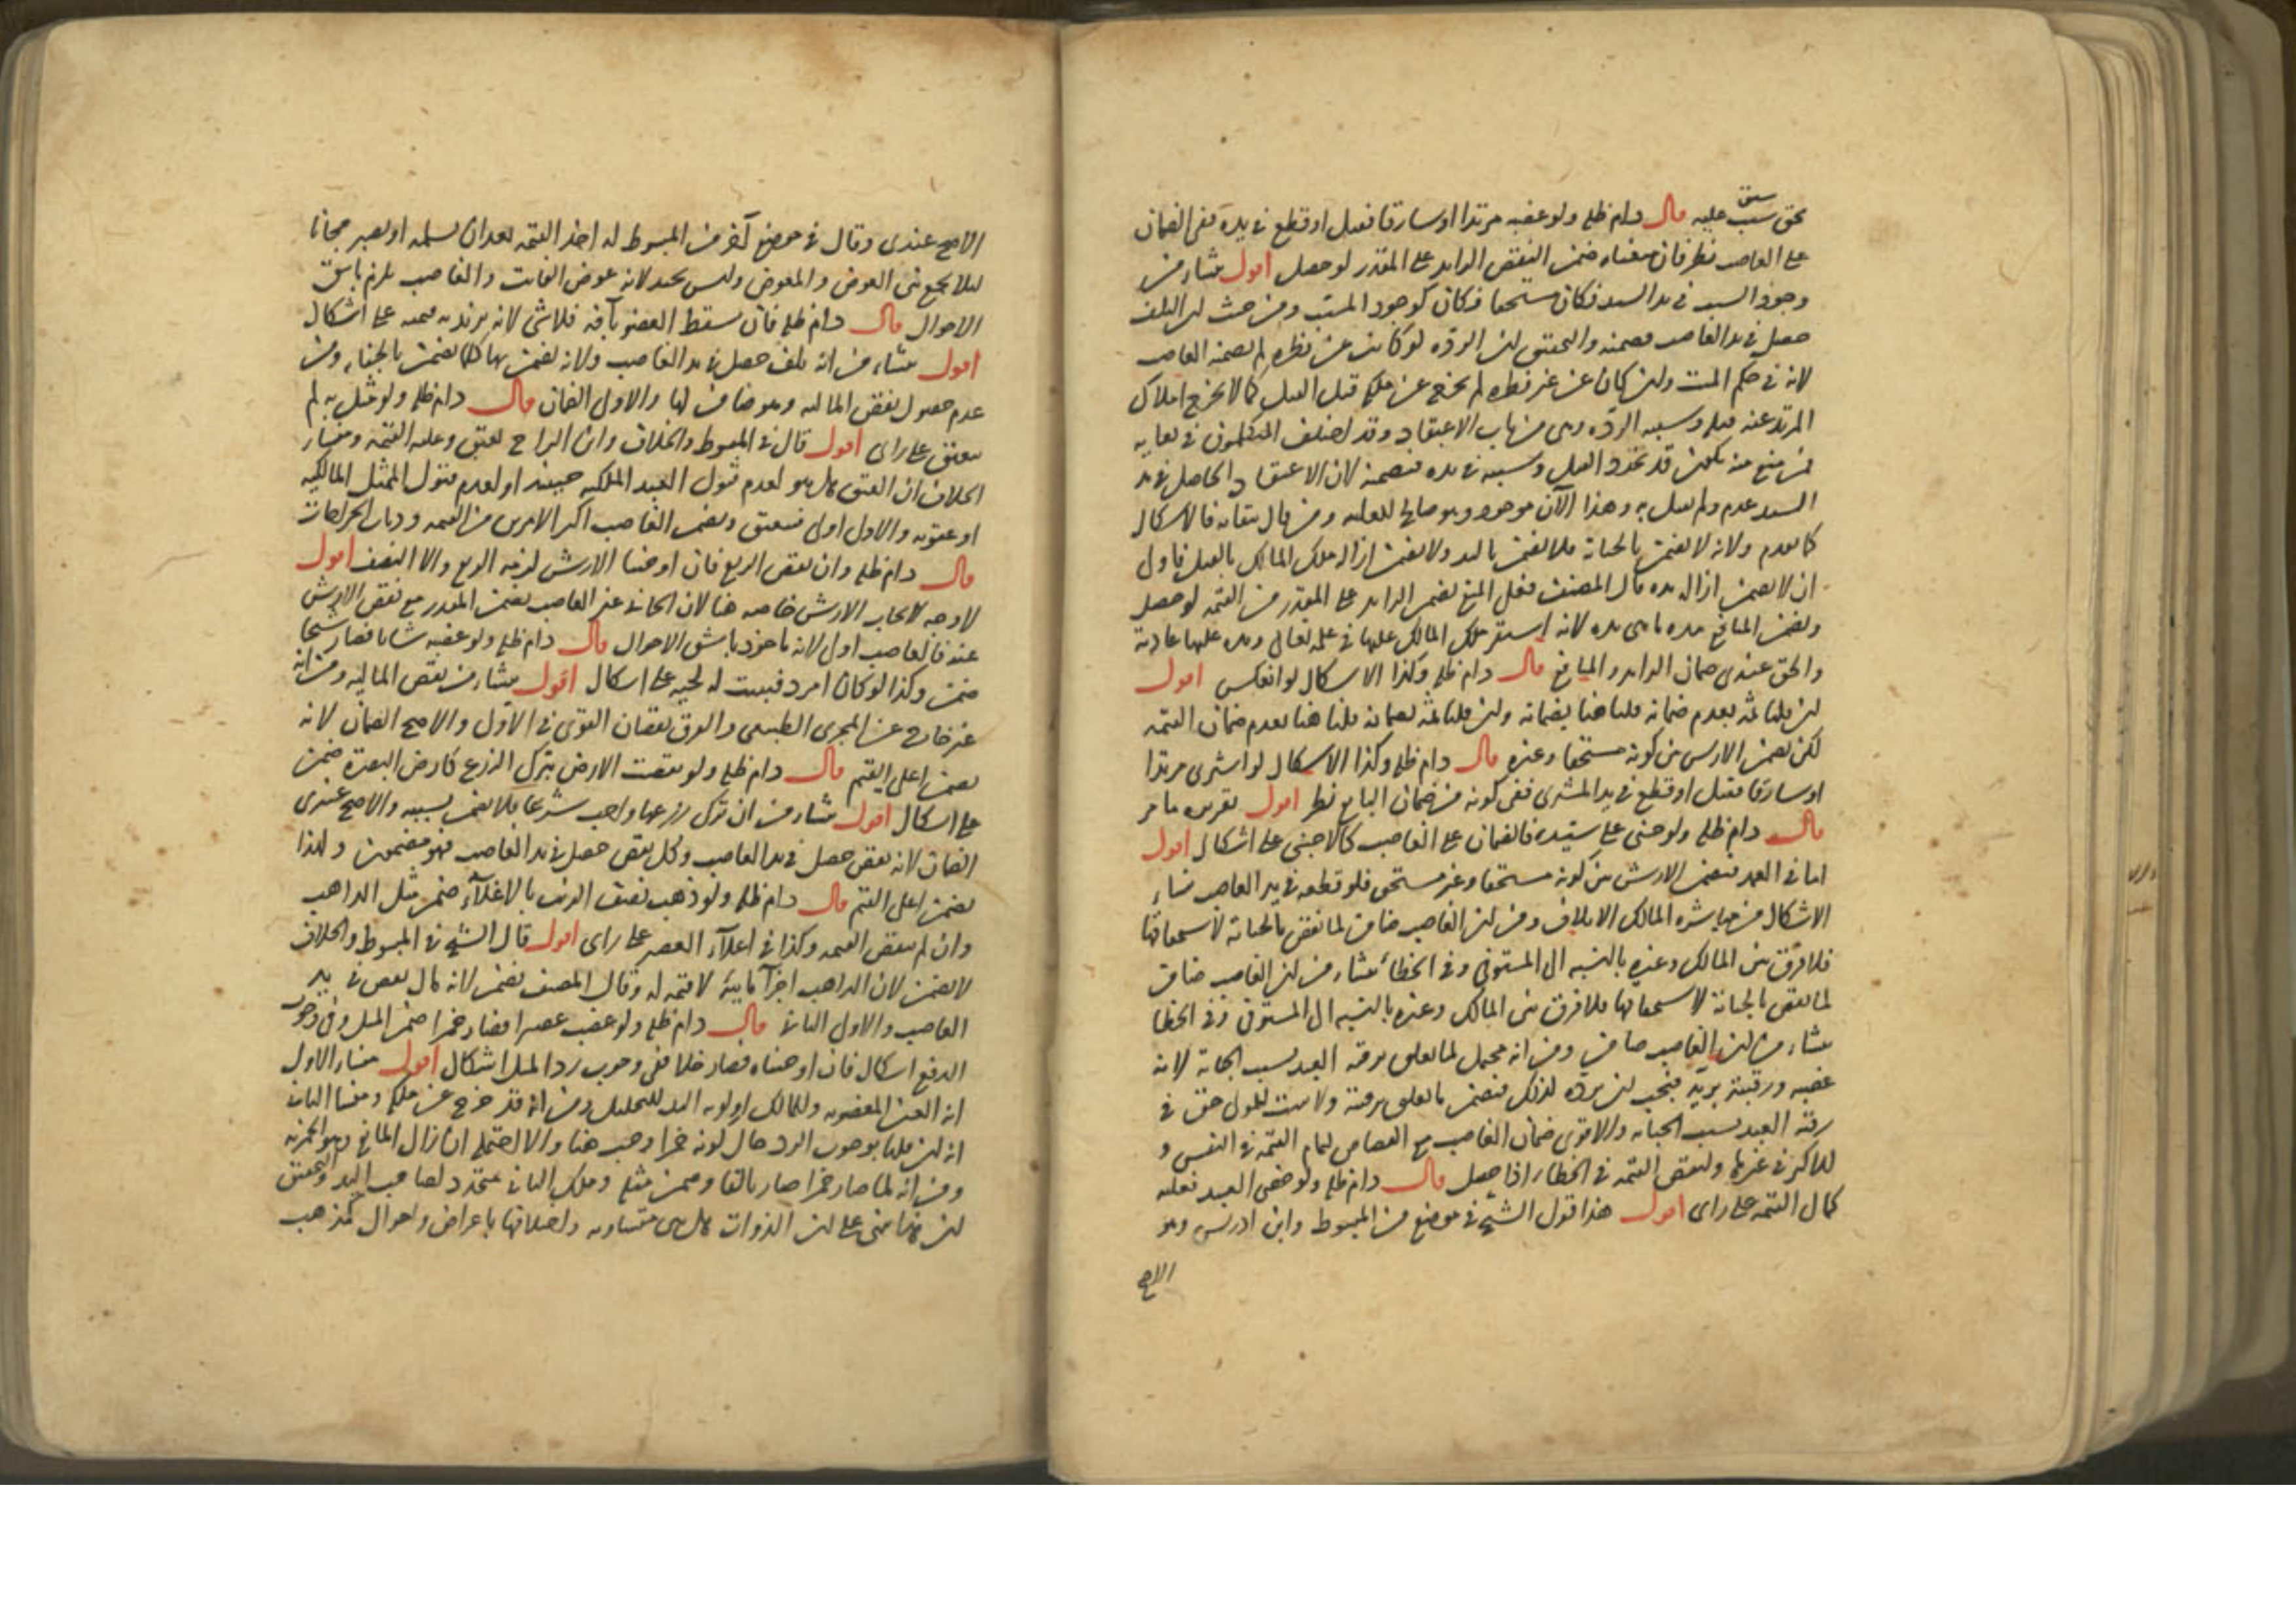 بحق سبق عليه قال دام ظله ولو غصبه مرتدا او سارقا فقتل او قطع في يده ففي الضمان
على الغاصب نظر فان منعناه ضمن النقص الزايد على المقدر لو حصل اقول منشاء من
وجود السبب في يد السيد فكان مستحقا فكان كوجود المسبب ومن حيث ان التلف
حصل في يد الغاصب فيضمنه والتحقيق ان الردة لو كانت عن فطرة لم يضمنه الغاصب
لانه في حكم الميت وان كان عن غير فطرة لم يخرج عن ملكه قبل القتل كما لا يخرج املاك
المرتد عنه قبله وسببه الردة وهي من باب الاعتقاد وقد اختلف المتكلمون في بقايه
فمن منع منه يكون قد تجدد القتل وسببه في يده فيضمنه لان الاعتقاد الحاصل في يد
السيد عدم ولم يقتل به وهذا الآن موجود وهو صالح للعلية ومن قال ببقايه فالاشكال
كما تقدم ولانه لا يضمن بالجناية فلا يضمن باليد ولا يضمن ازالة ملك المالك بالقتل فاولى
ان لا يضمن ازالة يده قال المصنف فعلى المنع يضمن الزايد على المقدر من القيمة لو حصل
ويضمن المنافع مدة ما هي يده لانه استقر ملك المالك عليها في علم الله تعالى ويده عليها عادية
والحق عندي ضمان الزايد والمنافع قال دام ظله وكذا الاشكال لو انعكس اقول
ان قلنا ثمة بعدم ضمانه قلنا هنا بضمانه وان قلنا ثمة بضمانه قلنا هنا بعدم ضمان القيمة
لكن يضمن الارش بين كونه مستحقا وغيره قال دام ظله وكذا الاشكال لو اشترى مرتدا
او سارقا فقتل او قطع في يد المشتري ففي كونه من ضمان البايع نظر اقول تقريره ما مر
قال دام ظله ولو جنى على سيده فالضمان على الغاصب كالاجنبي على اشكال اقول
اما في العمد فيضمن الارش بين كونه مستحقا وغير مستحق فلو قطعه في يد الغاصب منشاء
الاشكال من مباشرة المالك الاتلاف ومن ان الغاصب ضامن لما نقص بالجناية لاستحقاقها
فلا فرق بين المالك وغيره بالنسبة الى المستوفي وفي الخطاء منشاء من ان الغاصب ضامن
لما نقص بالجناية لاستحقاقها فلا فرق بين المالك وغيره بالنسبة الى المستوفي وفي الخطا
منشاء من ان الغاصب ضامن ومن انه محتمل لما تعلق برقبة العبد بسبب الجناية لانه
غصبه ورقبته برية فيجب ان يرده كذلك فيضمن ما تعلق برقبته ولا يثبت للمولى حق في
رقبة العبد بسبب الجناية والاقوى ضمان الغاصب مع القصاص لتمام القيمة في النفس و
للاكثر في غيرها ولنقص القيمة في الخطاء اذا حصل قال دام ظله ولو خصى العبد فعليه
كمال القيمة على راى اقول هذا قول الشيخ في موضع من المبسوط وابن ادريس وهو
الاصح
الاصح عندى وقال في موضع آخر من المبسوط له اخذ القيمة بعد ان يسلمه او يصبر مجانا
ليلا يجمع بين العوض والمعوض وليس بجيد لانه عوض الفايت والغاصب يلزم باشق
الاحوال قال دام ظله فان سقط العضو بآفة فلا شئ لانه يزيد به قيمته على اشكال
اقول منشاء من انه تلف حصل في يد الغاصب ولانه يضمن بها كما يضمن بالجناية ومن
عدم حصول نقص المالية وهو ضامن لها والاولى الضمان قال دام ظله ولو مثل به لم
ينعتق على راى اقول قال في المبسوط والخلاف وابن البراج يعتق وعليه القيمة ومنشاء
الخلاف ان العتق هل هو لعدم قبول العبد الملكية حينئذ او لعدم قبول الممثل المالكية
او عقوبة والاول اولى فينعتق ويضمن الغاصب اكثر الامرين من القيمة وديات الجراحات
قال دام ظله وان نقص الربع فان اوجبنا الارش لزمه الربع والا النصف اقول
لا وجه لايجاب الارش خاصة هنا لان الجاني غير الغاصب يضمن المقدر مع نقص الارش
عنه فالغاصب اولى لانه ماخوذ باشق الاحوال قال دام ظله ولو غصبه شابا فصار شيخا
ضمن وكذا لو كان امرد فنبتت له لحية على اشكال اقول منشاء من نقص المالية ومن انه
غير خارج عن المجرى الطبيعي والفرق نقصان القوى في الاول والاصح الضمان لانه
يضمن اعلى القيم قال دام ظله ولو نقصت الارض بترك الزرع كارض البصرة ضمن
على اشكال اقول منشاء من ان ترك زرعها واجب شرعا فلا يضمن بسببه والاصح عندى
الضمان لانه نقص حصل في يد الغاصب وكل نقص حصل في يد الغاصب فهو مضمون ولهذا
يضمن اعلى القيم قال دام ظله ولو ذهب نصف الزيت بالاغلآء ضمن مثل الذاهب
وان لم ينقص القيمة وكذا في اغلآء العصير على راى اقول قال الشيخ في المبسوط والخلاف
لا يضمن لان الذاهب اجزآ مايية لا قيمة له وقال المصنف يضمن لانه مال نقص في يد
الغاصب والاولى الثاني قال دام ظله ولو غصب عصيرا فصار خمرا ضمن المثل وفي وجوب
الدفع اشكال فان اوجبناه فصار خلا ففي وجوب رد المثل اشكال اقول منشاء الاول
انه العين المغصوبه وللمالك اولوية اليد للتخليل ومن انه قد خرج عن ملكه ومنشا الثاني
انه ان قلنا بوجوب الرد حال كونه خمرا وجب هنا والا احتمل ان زال المانع وهو الخمرية
ومن انه لما صار خمرا صار تالفا وضمن مثله وملك الثاني متجدد لصاحب اليد والتحقيق
ان هذا مبنى على ان الذوات هل هى متساوية واختلافها باعراض واحوال كمذهب